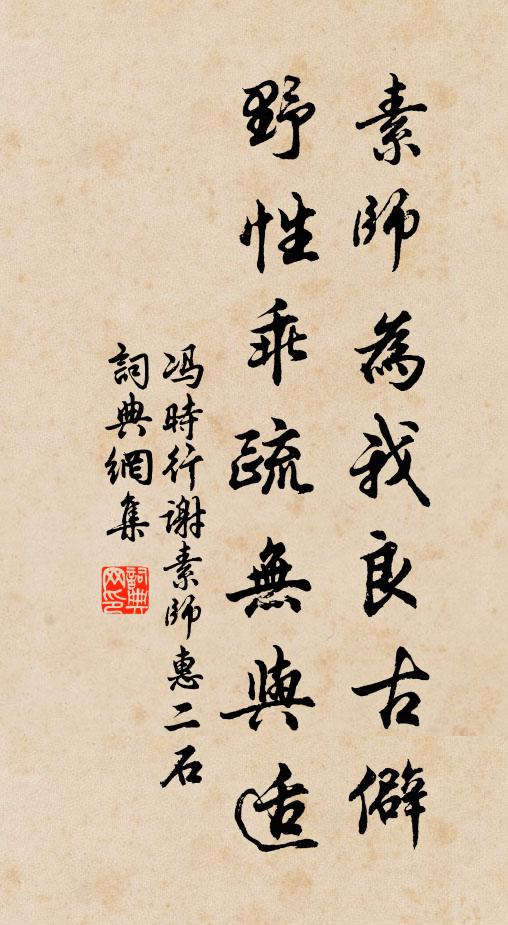 素師為我良古僻
野性乖疏無與适
冯時行谢素師惠二石
詞典網集
詞典网印